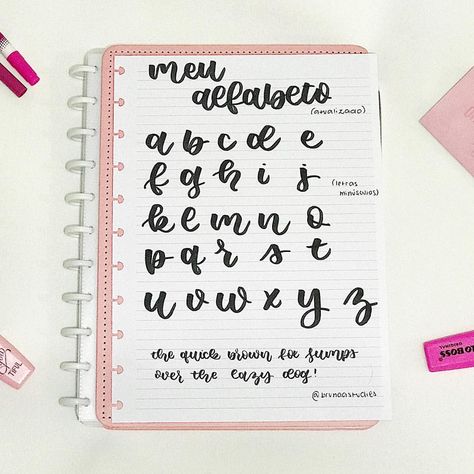 meu
alfabeto
(atualizado)
a b c d e
f g h i j
(letras
minúsculas)
k l m n o
p q r s t
u v w x y z
the quick brown fox jumps
over the lazy dog!
@brunaastudies
LO BOSS
ORIGINAL